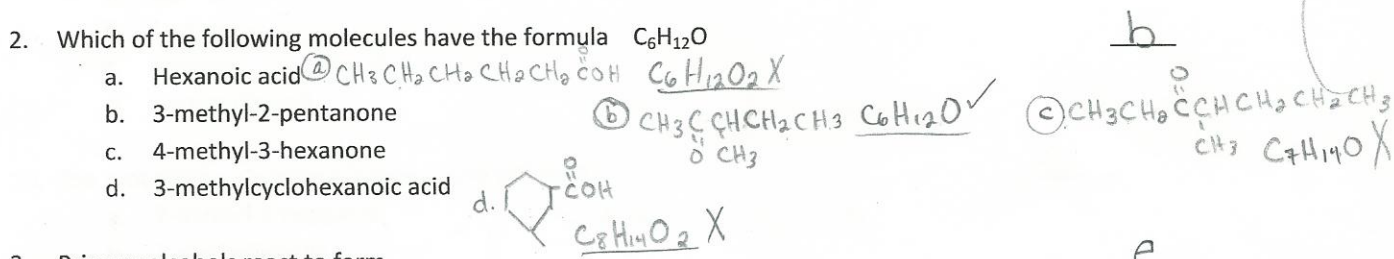 b
2. Which of the following molecules have the formula C₆H₁₂O
a. Hexanoic acid ⓐ CH₃CH₂CH₂CH₂CH₂C̈OH O C₆H₁₂O₂ X
b. 3-methyl-2-pentanone ⓑ CH₃C CHCH₂CH₃ C₆H₁₂O ✓ O CH₃
ⓒ CH₃CH₂CCHCH₂CH₂CH₃ O CH₃ C₇H₁₄O X
c. 4-methyl-3-hexanone
d. 3-methylcyclohexanoic acid d. COH O
C₈H₁₄O₂ X
e